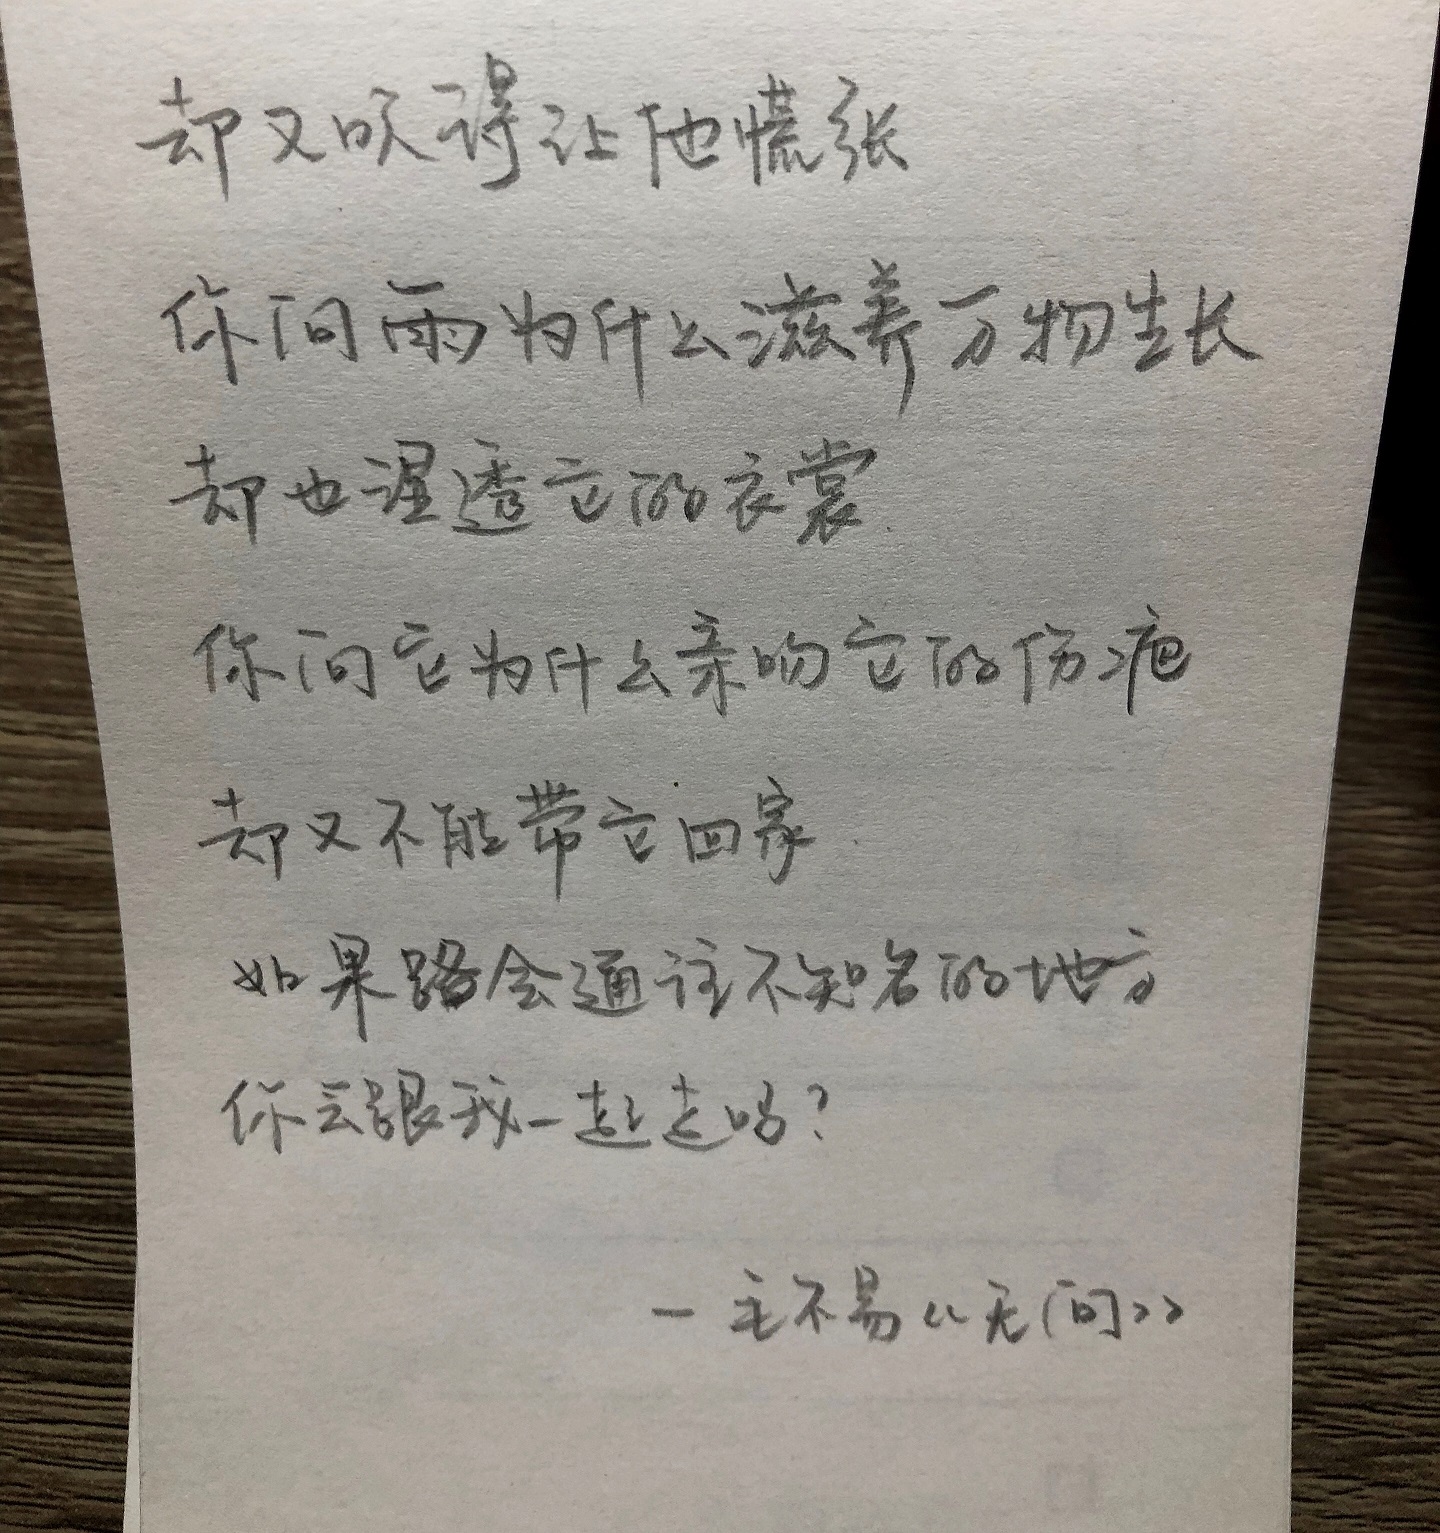 却又吹得让他慌张
你问雨为什么滋养万物生长
却也湿透它的衣裳
你问它为什么亲吻它的伤疤
却又不能带它回家
如果路会通往不知名的地方
你会跟我一起走吗?
一毛不易《无问》